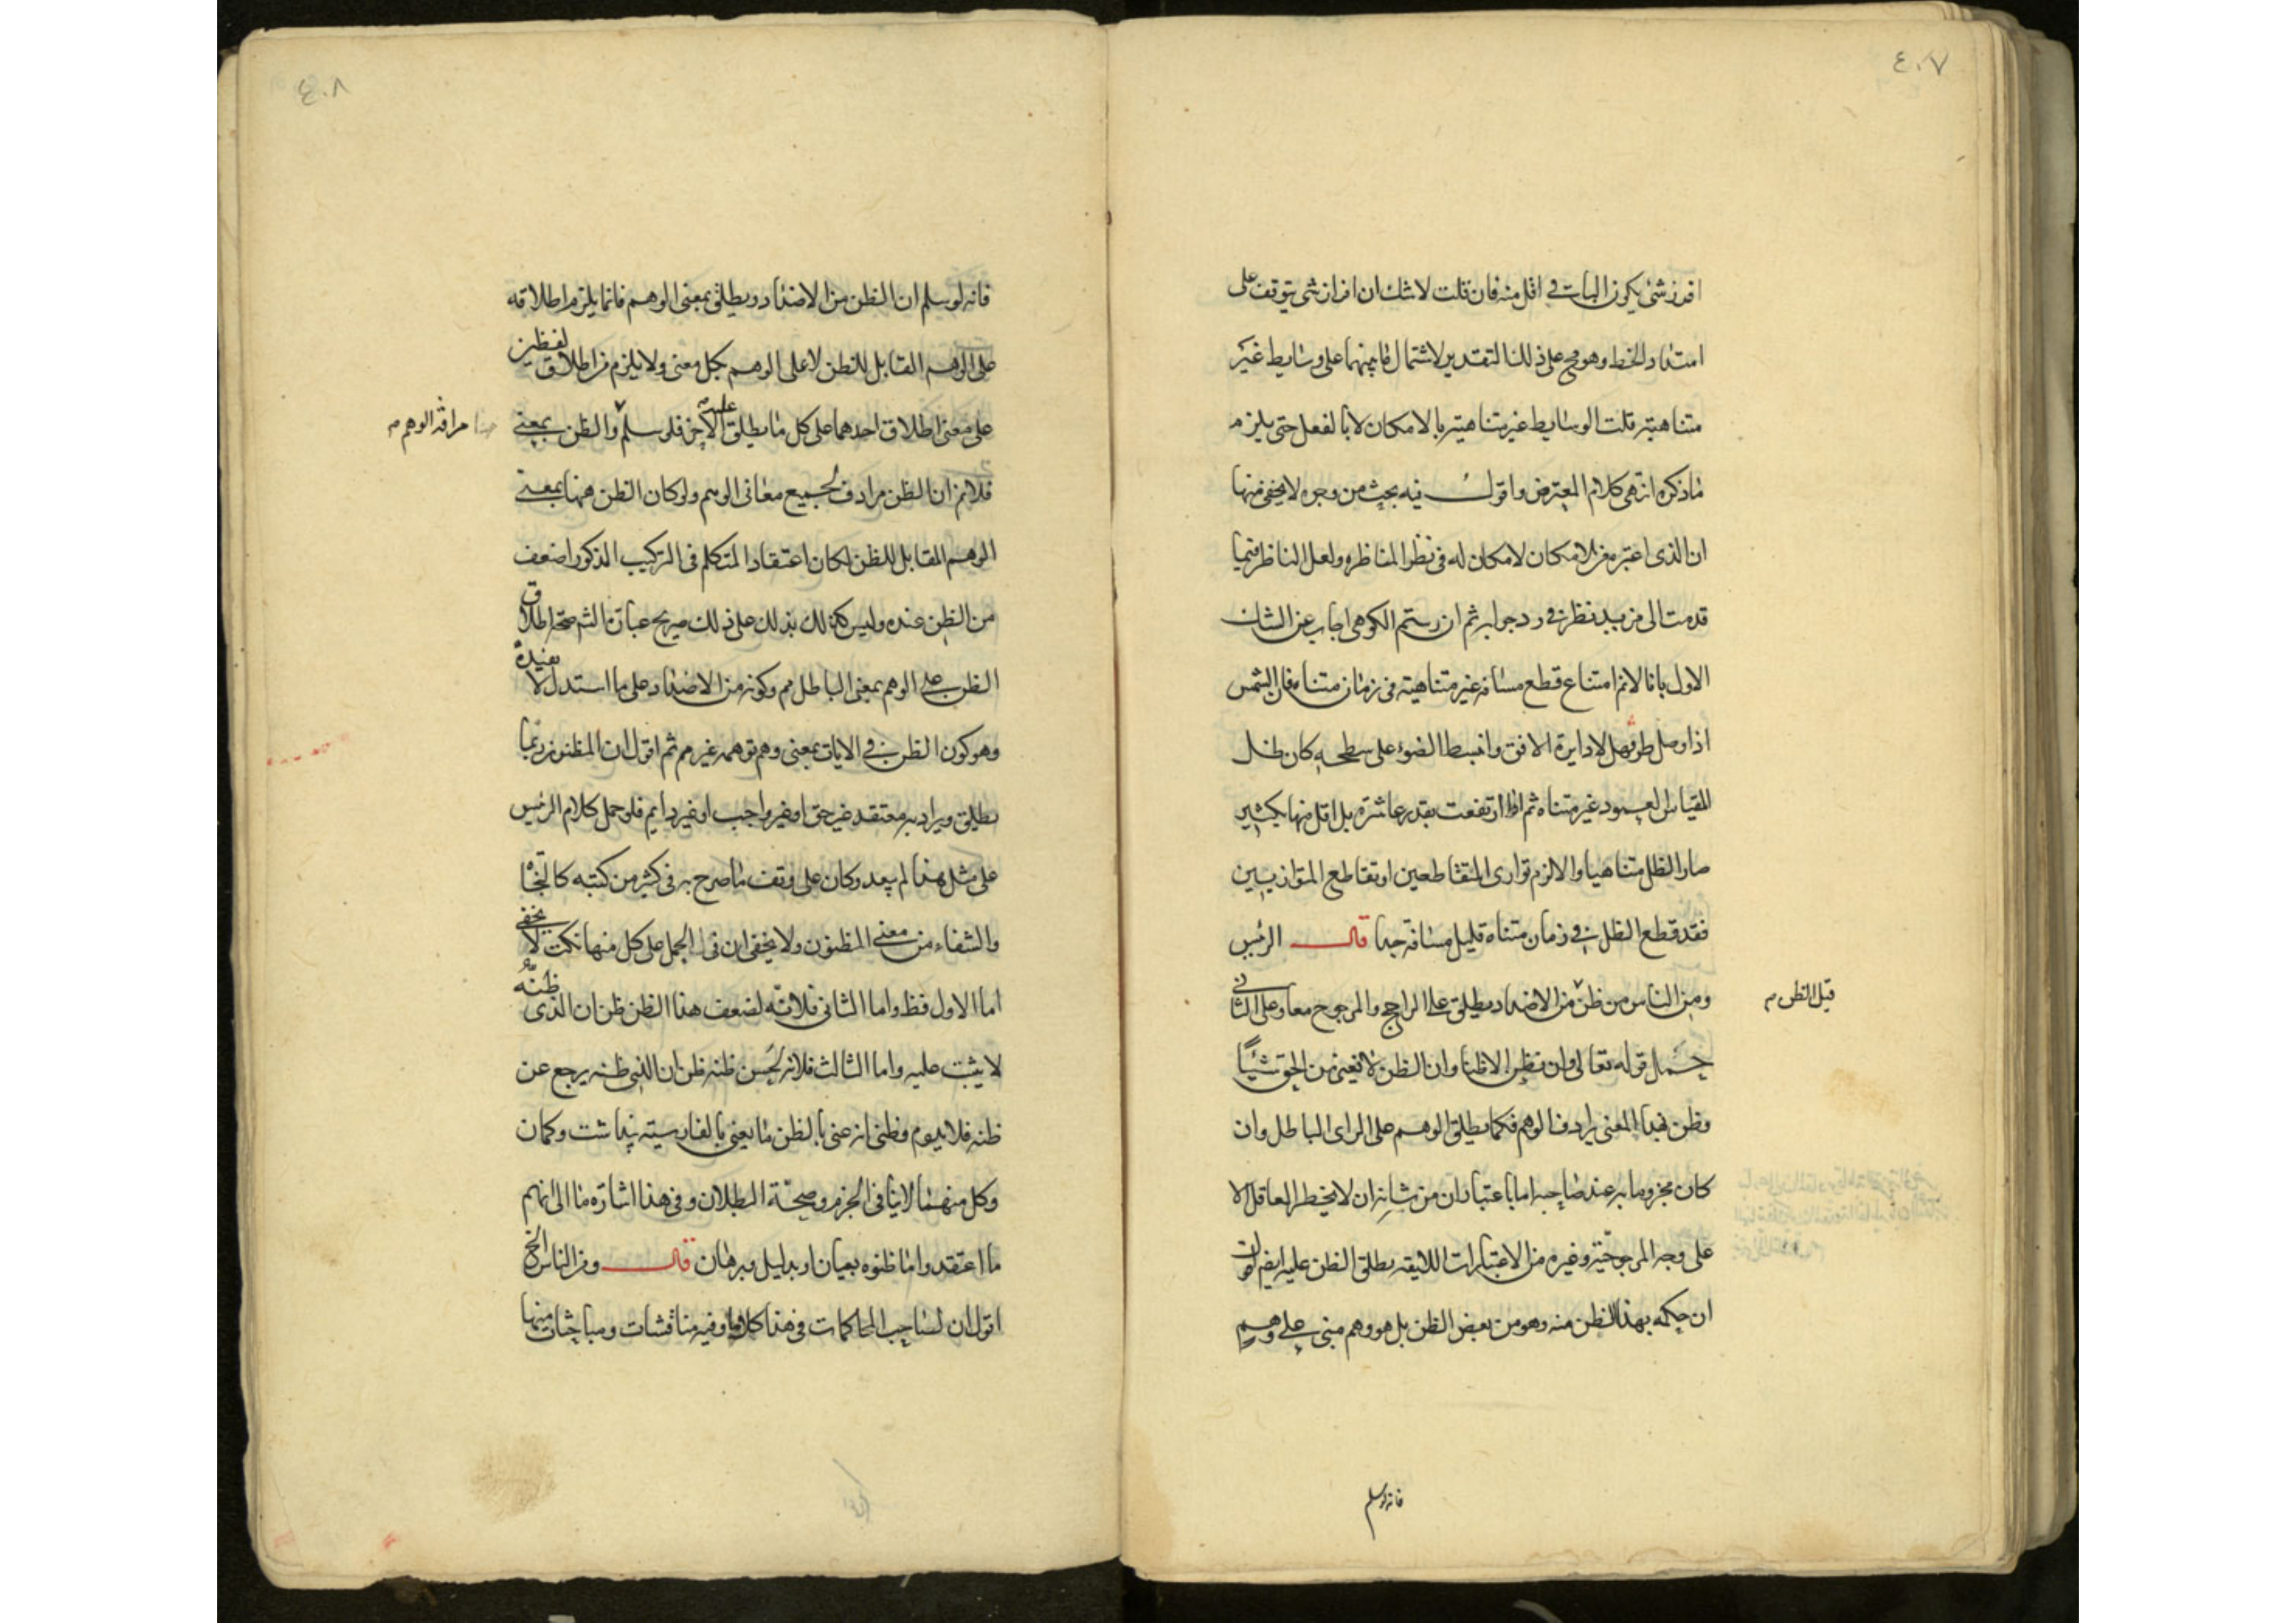 ٤٠٧
افرز شئ يكون الباقى اقل منه فان قلت لا شك ان افراز شئ يتوقف على
امتداد الخط وهو مح على ذلك التقدير لاشتمال ما بينهما على وسايط غير
متناهية قلت الوسايط غير متناهية بالامكان لا بالفعل حتى يلزم
ما ذكره انتهى كلام المعترض واقول فيه بحث من وجوه لا يخفى منها
ان الذى اعتبره من الامكان لا امكان له فى نظر المناظره ولعل الناظر فيما
قدمت الى مزيد نظر فى رد جوابه ثم ان رستم الكوهى اجاب عن الشك
الاول بانا لانم امتناع قطع مسافة غير متناهية فى زمان متناه فان الشمس
اذا وصل طرفها الا دايرة الافق وانبسط الضوء على سطحه كان ظل
المقياس العمود غير متناه ثم اذا ارتفعت بقدر عاشرة بل اقل منها بكثير
صار الظل متناهيا والا لزم توازى المتقاطعين او تقاطع المتوازيين
فقد قطع الظل فى زمان متناه قليل مسافة جدا قال الرئيس
ومن الناس من ظن من الاضداد يطلق على الراجح والمرجوح معا وعلى الثانى
قيل الظن م
حمل قوله تعالى وان نظن الا ظنا وان الظن لا يغنى من الحق شيئا
وظن بهذا المعنى يرادف الوهم فكما يطلق الوهم على الراى الباطل وان
كان مجزوما به عند صاحبه اما باعتبار ان من شانه ان لا يخطر العاقل الا
على وجه المرجوحية وغيره من الاعتبارات اللايقة يطلق الظن عليه ايضا
ان حكمه بهذا الظن منه وهو من بعض الظن بل هو وهم مبنى على وهم
فانه لو سلم
٤٠٨
فانه لو سلم ان الظن من الاضداد ويطلق بمعنى الوهم فانما يلزم اطلاقه
على الوهم المقابل للظن لا على الوهم بكل معنى ولا يلزم من اطلاق لفظين
على معنى اطلاق احدهما على كل ما يطلق عليه الاخر فلو سلم والظن بمعنى
مرادفة الوهم م
فلانم ان الظن مرادف لجميع معانى الوهم ولو كان الظن ههنا بمعنى
الوهم المقابل للظن لكان اعتقاد المتكلم فى التركيب المذكور اضعف
من الظن عنده وليس كذلك يدلك على ذلك صريح عبارة الشم صحة اطلاق
الظن على الوهم بمعنى الباطل مم وكونه من الاضداد على ما استدل لا يفيده
وهو كون الظن فى الايات بمعنى وهم توهمه غير مم ثم اقول ان المظنون ربما
يطلق ويراد به معتقد غير حق او غير واجب او غير دايم فلو حمل كلام الرئيس
على مثل هذا لم يبعد وكان على وقف ما صرح به فى كثير من كتبه كالنجاة
والشفاء من معنى المظنون ولا يخفى ان فى الحمل على كل منها نكت لا يخفى
اما الاول فظ واما الثانى فلانه لضعف هذا الظن ظن ان الذى ظنه
لا يثبت عليه واما الثالث فلانه لحسن ظنه ظن ان الذى ظنه يرجع عن
ظنه فلا يدوم وظنى انه عنى بالظن ما يعنى بالفارسيته پنداشت وكمان
وكل منهما لا ينافى الجزم وصحة البطلان وفى هذا اشارة ما الى انهم
ما اعتقدوا ما ظنوه بعيان او بدليل وبرهان قال ومن الناس الخ
اقول ان لصاحب المحاكمات فى هذا كلاما وفيه مناقشات ومباحثات منها